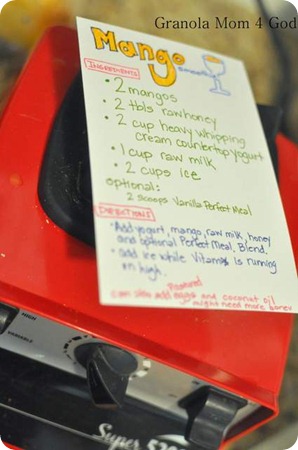 Granola Mom 4 God
Mango
Smoothie
INGREDIENTS
• 2 mangos
• 2 tbls raw honey
• 2 cup heavy whipping
cream countertop yogurt
• 1 cup raw milk
• 2 cups ice
optional:
2 scoops Vanilla Perfect Meal
DIRECTIONS
• Add yogurt, mango, raw milk, honey
and optional Perfect Meal, Blend.
• add ice while Vitamix is running
on high.
Pastured
can also add eggs and coconut oil
might need more honey
HIGH
VARIABLE
Super